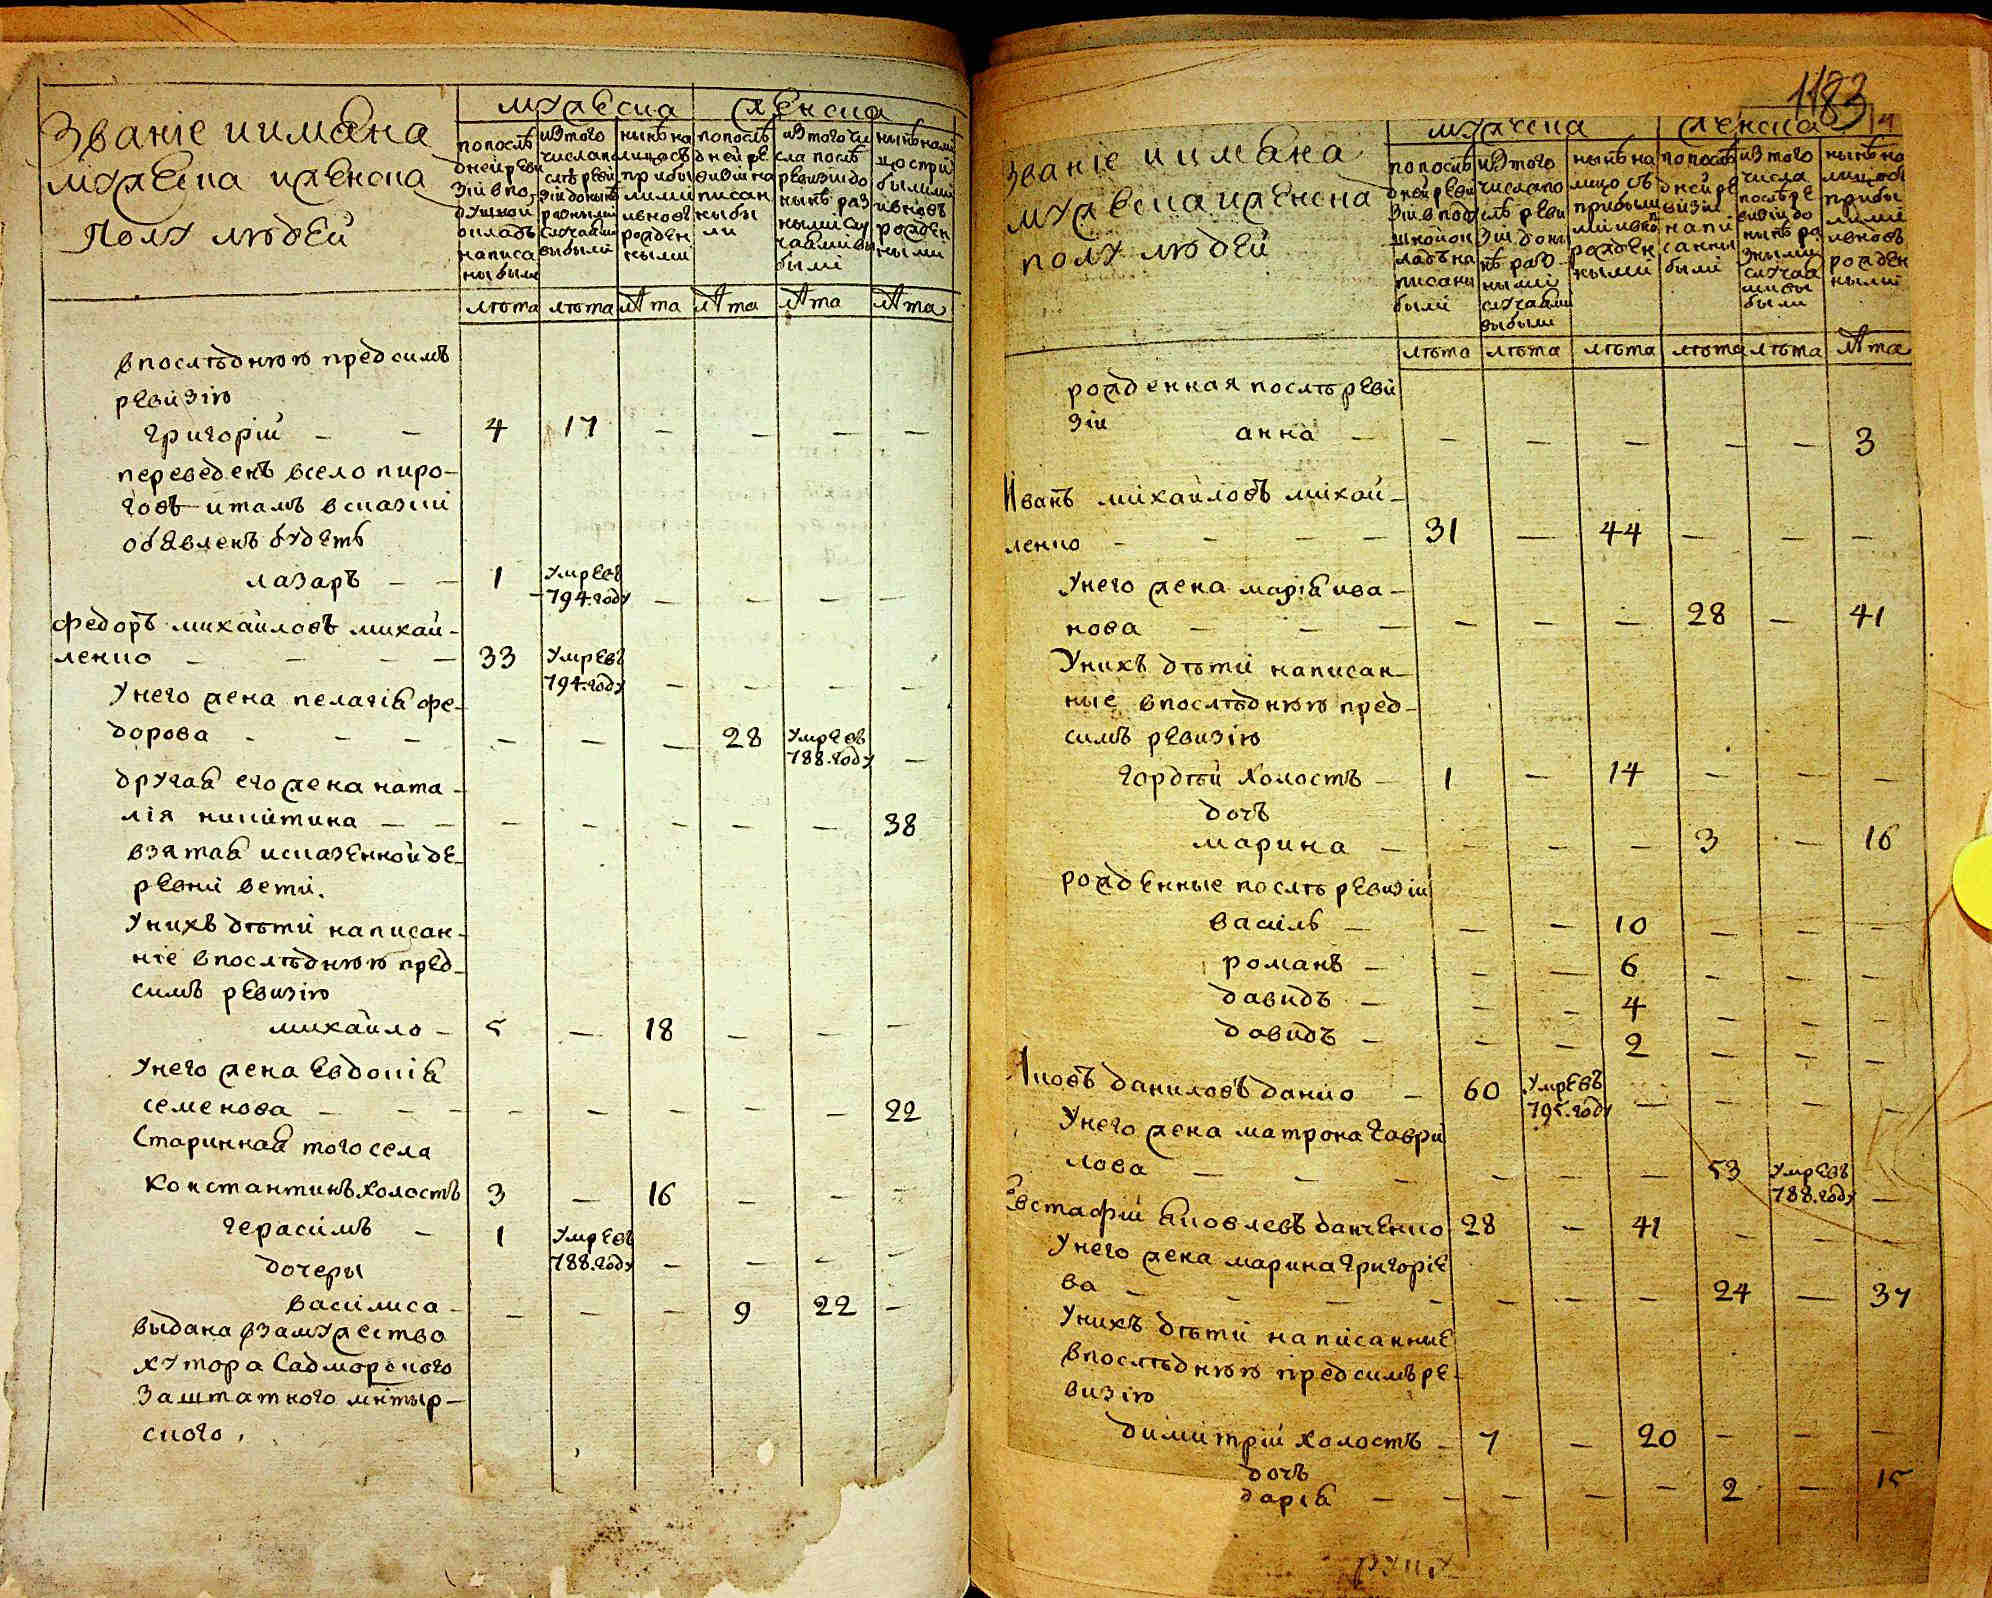 Званіе и имяна
мужеска и женска
Полу людей
мужеска
женска
по послѣ
дней реви
зіи в по
душной
окладъ
написа
ны были
из того
числа по
слѣ реви
зіи до нынѣ
разными
случаями
выбыли
нынѣ на
лицо съ
прибы
лыми
и вновь
рожден
ными
по послѣ
дней ре
визіи на
писан
ны бы
ли
из того чи
сла послѣ
ревизіи до
нынѣ раз
ными слу
чаями вы
быліи
нынѣ нали
цо с при
былыми
и вновь
рожден
ными
лѣта лѣта лѣта лѣта лѣта лѣта
в послѣднюю пред симъ
ревизію
григорій – – 4 17 – – – –
переведенъ в село пиро-
говъ и тамъ в сказки
объявленъ будетъ
лазаръ – – 1 умре въ
794. году – – – –
федоръ михайловъ михай-
ленко – – – – 33 умре въ
794. году – – – –
у него жена пелагія фе-
дорова – – – – – – 28 умре въ
788. году –
другая его жена ната-
лія никитина – – – – – – – 38
взятая и сказенной де-
ревни вети.
у нихъ дѣти написан-
ніе в послѣднюю пред-
симъ ревизію
михайло – 5 – 18 – – –
у него жена Евдокія
семенова – – – – – – – – 22
Старинная того села
константинъ холостъ 3 – 16 – – –
герасимъ – 1 умре въ
788. году – – – –
дочеры
василиса – – – – 9 22 –
выдана в замужество
хутора Садморского
заштатного мнтыр-
ского.
1183
Званіе и имяна
мужеска и женска
полу людей
мужеска
женска
по послѣ
дней реви
зіи в поду
шной ок
ладъ на
писаны
былі
из того
числа по
слѣ реви
зіи до ны
нѣ раз-
ными
случаями
выбыли
нынѣ на
лицо съ
прибылы
ми и вно
рожден
ными
по послѣ
дней ре
визіи
напи
санны
былі
из того
числа
послѣ ре
визіи до
нынѣ ра
зными
случая
ми вы
были
нынѣ на
лицо
прибы
лыми
и вновь
рожден
ными
лѣта лѣта лѣта лѣта лѣта лѣта
рожденная послѣ реви
зіи
анна – – – – – – 3
Иванъ михайловъ михай-
ленко – – – – 31 – 44 – – –
у него жена марія ива-
нова – – – – – – 28 – 41
у нихъ дѣти написан-
ные в послѣднюю пред-
симъ ревизію
гордѣй холостъ – 1 – 14 – – –
дочъ
марина – – – – 3 – 16
рожденные послѣ ревизіи
василь – – – 10 – – –
романъ – – – 6 – – –
давидъ – – – 4 – – –
давидъ – – – 2 – – –
Яковъ даниловъ данко – 60 умре въ
795. году – – – –
у него жена матрона гаври
лова – – – – – – 53 умре въ
788. году –
Евстафій яковлевъ данченко 28 – 41 – – –
у него жена марина григоріе
ва – – – – – – – 24 – 37
у нихъ дѣти написанние
в послѣднюю пред симъ ре-
визію
димитрій холостъ – 7 – 20 – – –
дочъ
дарія – – – – – 2 – 15